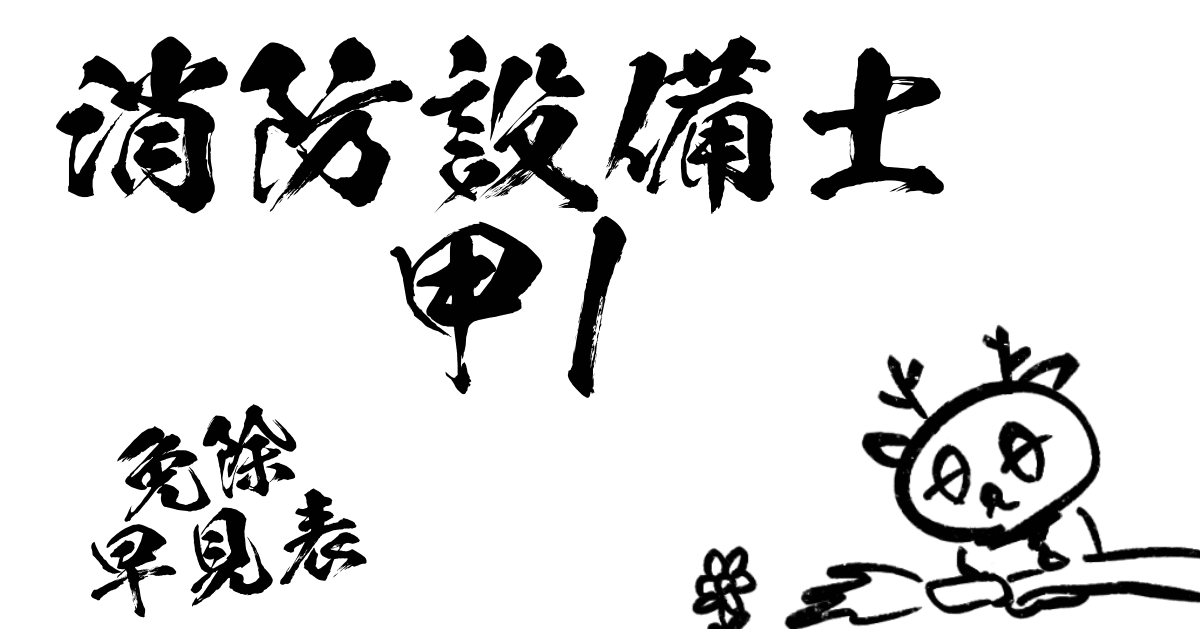 消防設備士
甲1
免除
早見表